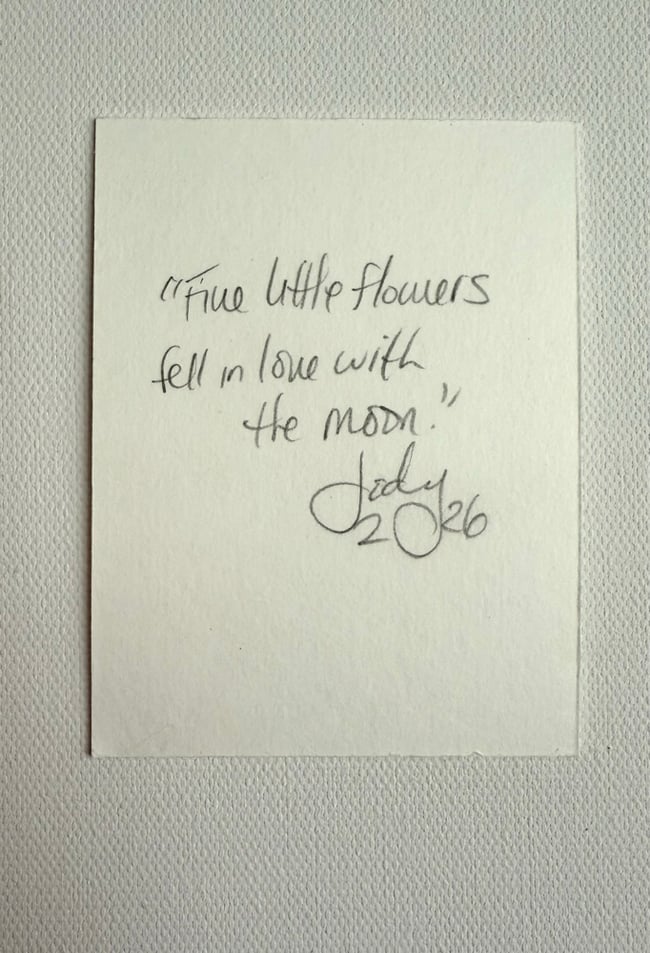 "Five little flowers
fell in love with
the moon."
Jody
2026